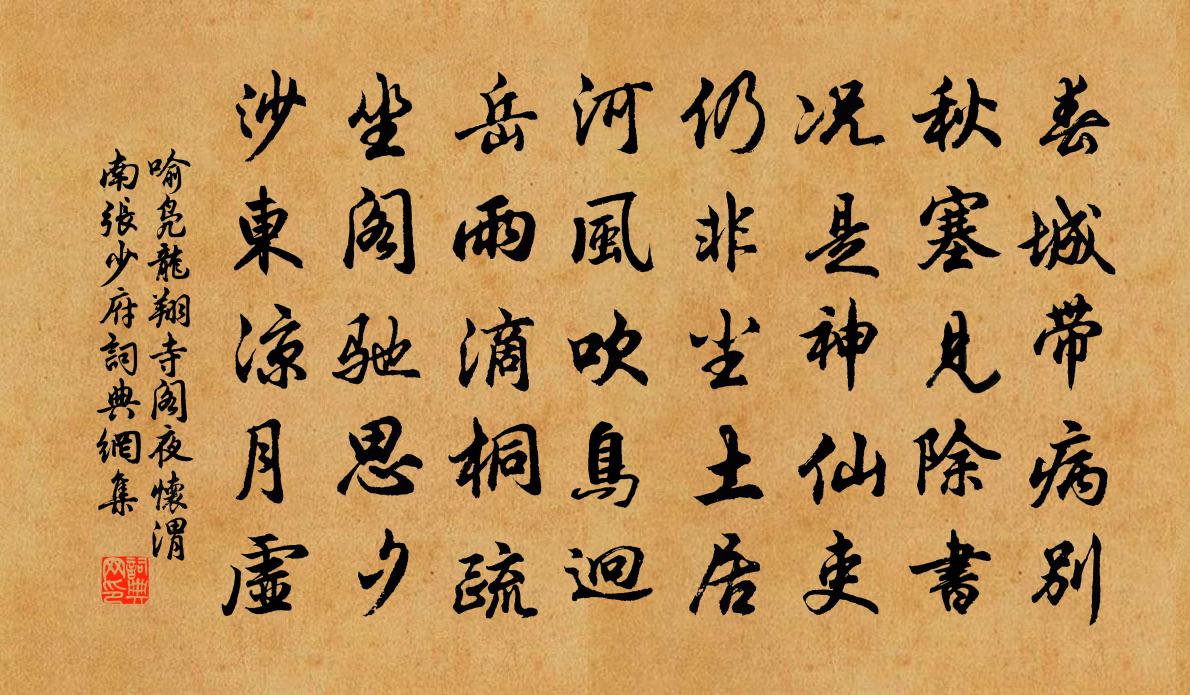 春城带病别
秋塞見除書
况是神仙吏
仍非尘土居
河風吹鳥迥
岳雨滴桐疏
坐阁馳思夕
沙東凉月虛
喻凫龍翔寺阁夜懷渭
南張少府詞典網集
詞典网印